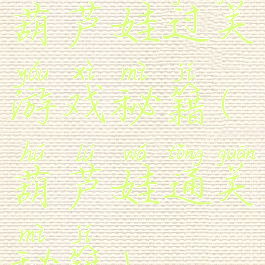 葫芦娃过关
yóu xì mì jí
游戏秘籍(
hú lú wá tōng guān
葫芦娃通关
mì jí
秘籍)